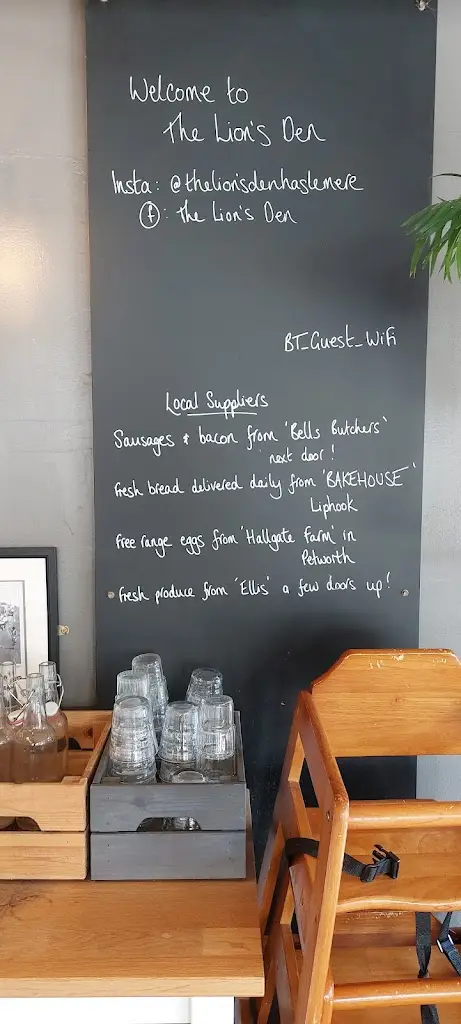 Welcome to
The Lion's Den
Insta: @thelionsdenhaslemere
f: The Lion's Den
BT_Guest_WiFi
Local Suppliers
Sausages + bacon from 'Bells Butchers'
next door!
Fresh bread delivered daily from 'BAKEHOUSE'
Liphook
Free range eggs from 'Hallgate Farm' in
Petworth
Fresh produce from 'Ellis' a few doors up!